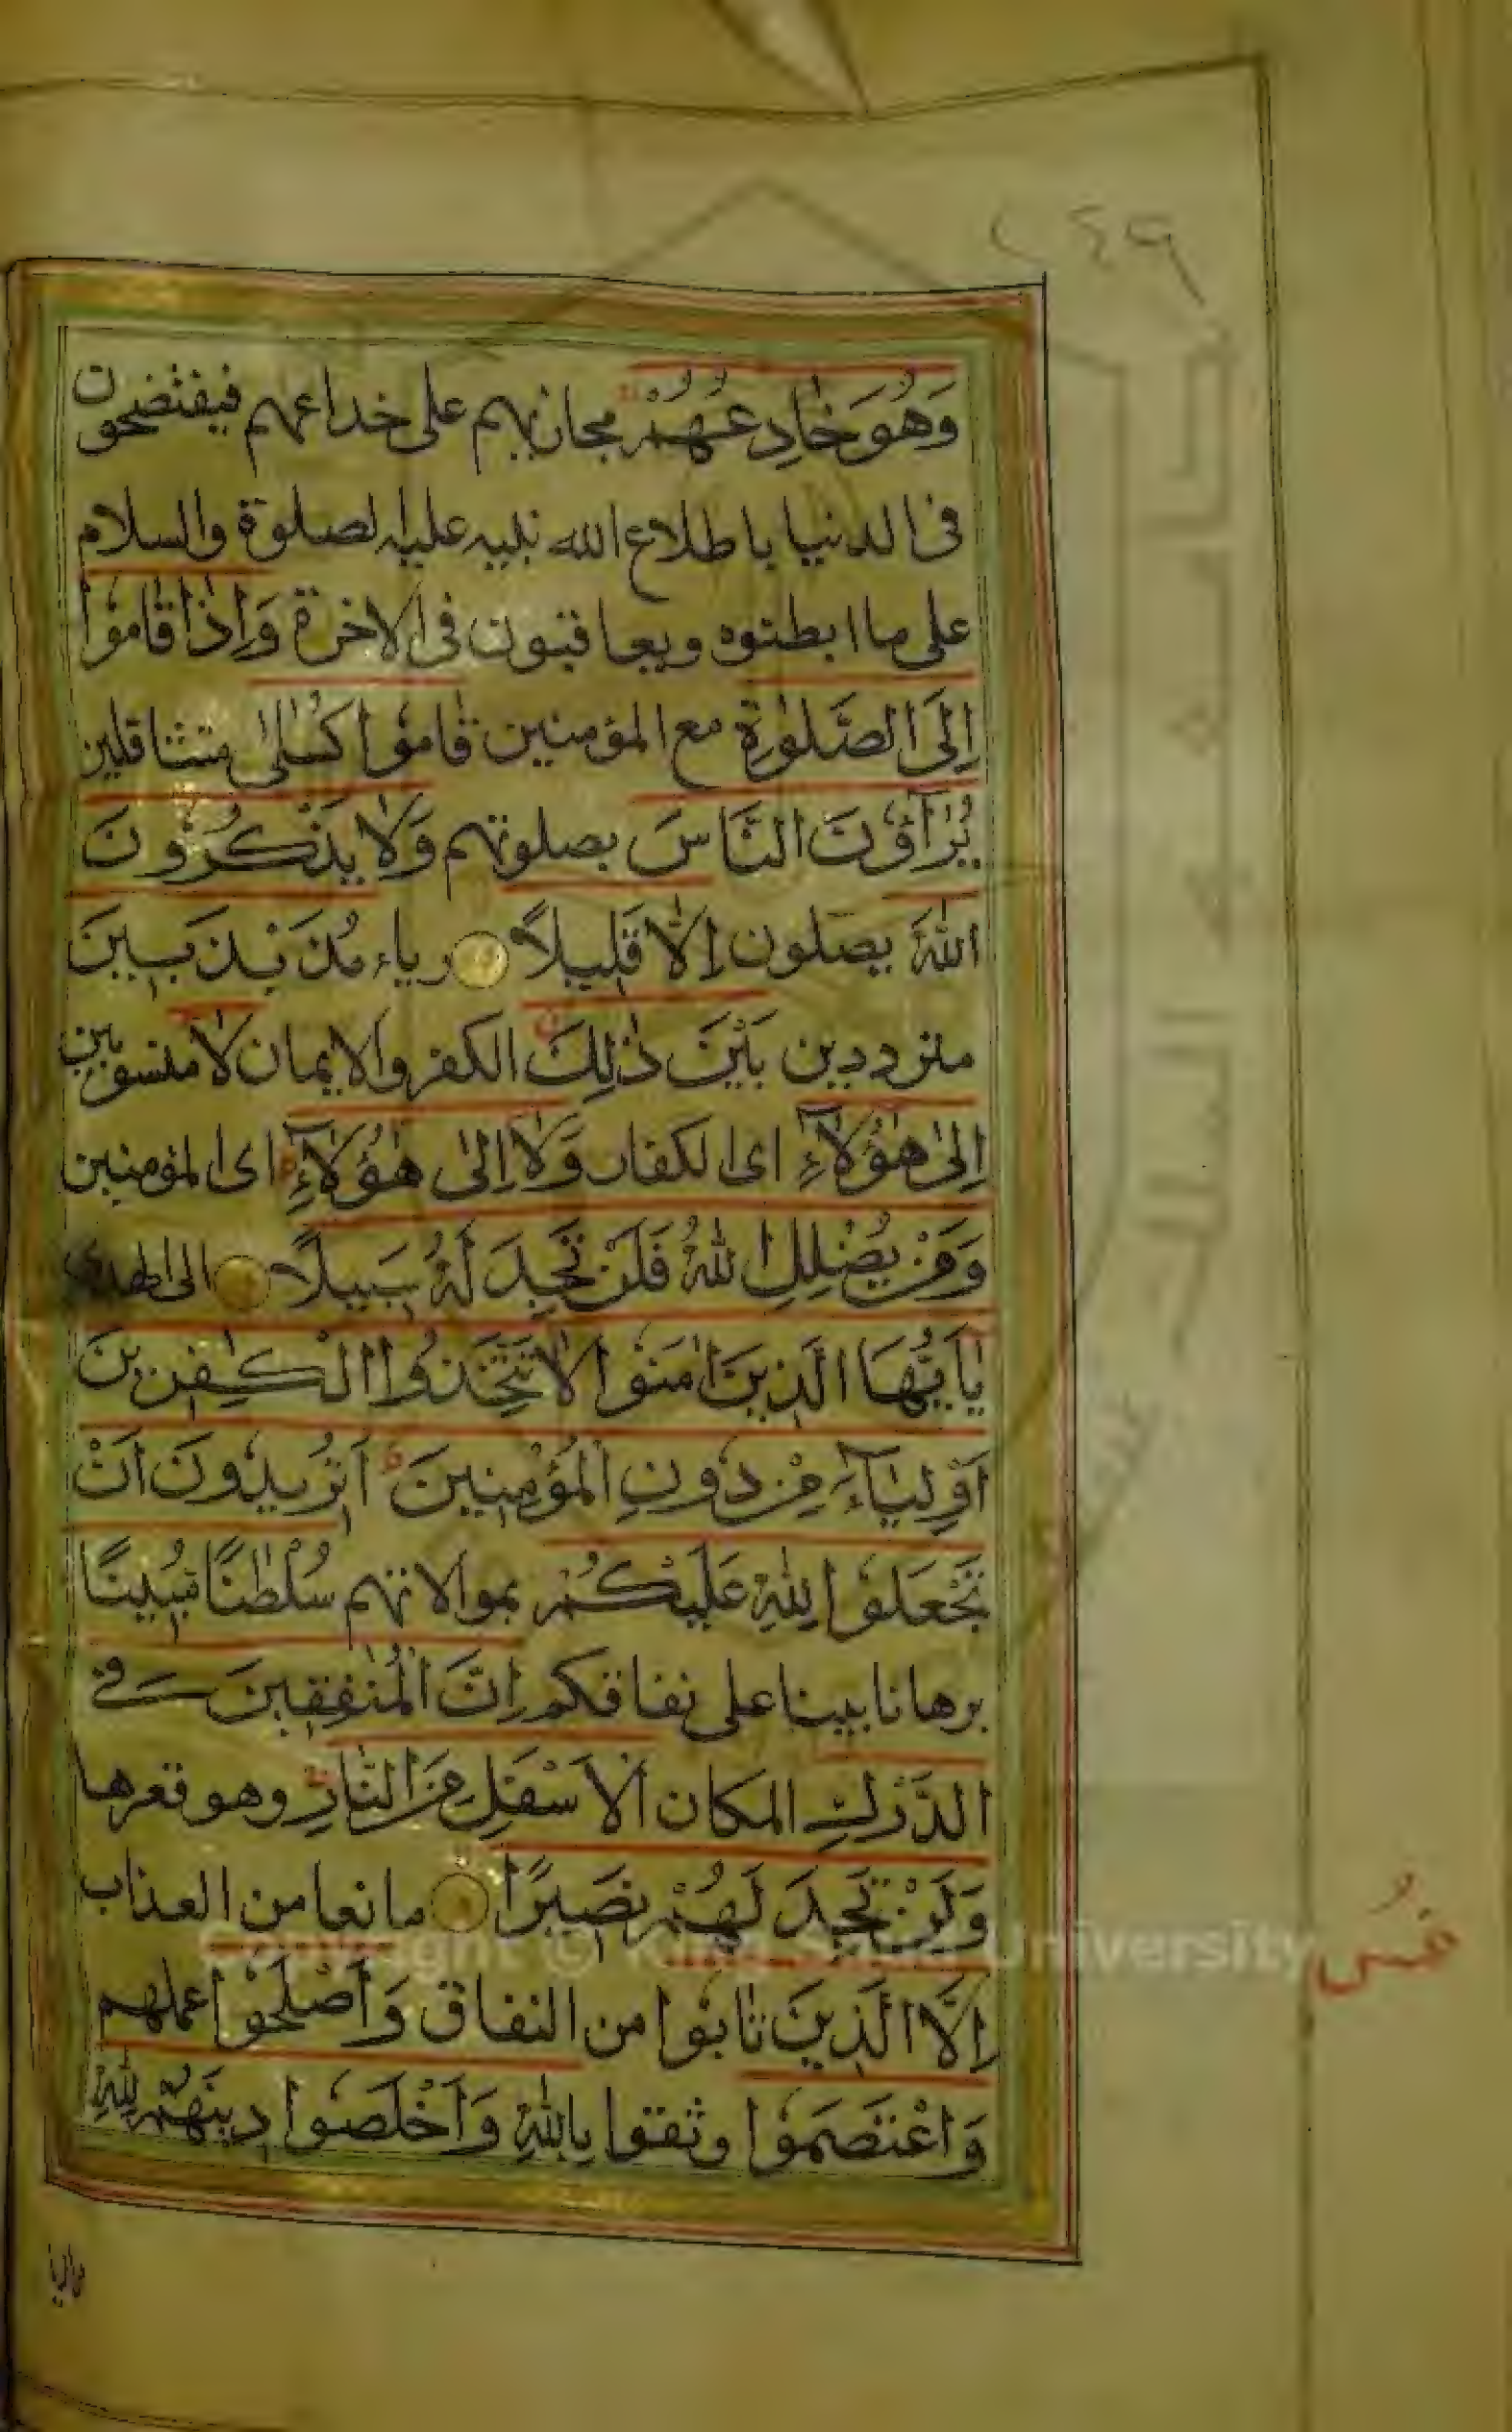 ٢٤٩
وَهُوَ خَادِعُهُمْ مجازيهم على خداعهم فيفتضحون
فى الدنيا باطلاع الله نبيه عليه لصلوة والسلام
على ما ابطنوه ويعاقبون فى الاخرة وَاِذَا قَامُوا
اِلَى الصَّلٰوةِ مع المؤمنين قَامُوا كُسَالٰى متثاقلين
يُرَآؤُنَ النَّاسَ بصلوتهم وَلَا يَذْكُرُونَ
اللّٰهَ يصلون اِلَّا قَلِيلًا رياء مُذَبْذَبِينَ
مترددين بَيْنَ ذٰلِكَ الكفر والايمان لَا منسوبين
اِلٰى هٰؤُلَآءِ اى الكفار وَلَا اِلٰى هٰؤُلَآءِ اى المؤمنين
وَمَنْ يُضْلِلِ اللّٰهُ فَلَنْ تَجِدَ لَهُ سَبِيلًا الى الهدى
يَا اَيُّهَا الَّذِينَ اٰمَنُوا لَا تَتَّخِذُوا الْكٰفِرِينَ
اَوْلِيَآءَ مِنْ دُونِ الْمُؤْمِنِينَ اَتُرِيدُونَ اَنْ
تَجْعَلُوا لِلّٰهِ عَلَيْكُمْ بموالاتهم سُلْطٰنًا مُبِينًا
برهانا بينا على نفاقكم اِنَّ الْمُنٰفِقِينَ فِى
الدَّرْكِ المكان الْاَسْفَلِ مِنَ النَّارِ وهو قعرها
وَلَنْ تَجِدَ لَهُمْ نَصِيرًا مانعا من العذاب
اِلَّا الَّذِينَ تَابُوا من النفاق وَاَصْلَحُوا عملهم
وَاعْتَصَمُوا وثقوا بِاللّٰهِ وَاَخْلَصُوا دِينَهُمْ لِلّٰهِ
Copyright © King Saud University